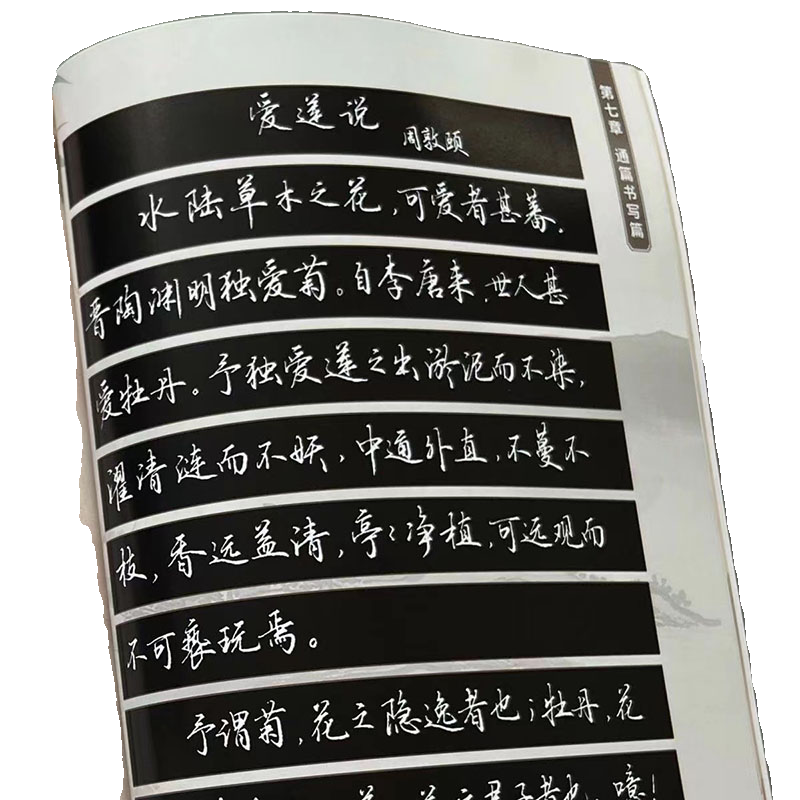 爱莲说
周敦颐
水陆草木之花，可爱者甚蕃。
晋陶渊明独爱菊。自李唐来，世人甚
爱牡丹。予独爱莲之出淤泥而不染，
濯清涟而不妖，中通外直，不蔓不
枝，香远益清，亭亭净植，可远观而
不可亵玩焉。
予谓菊，花之隐逸者也；牡丹，花
君子者也。噫！
第七章 通篇书写篇